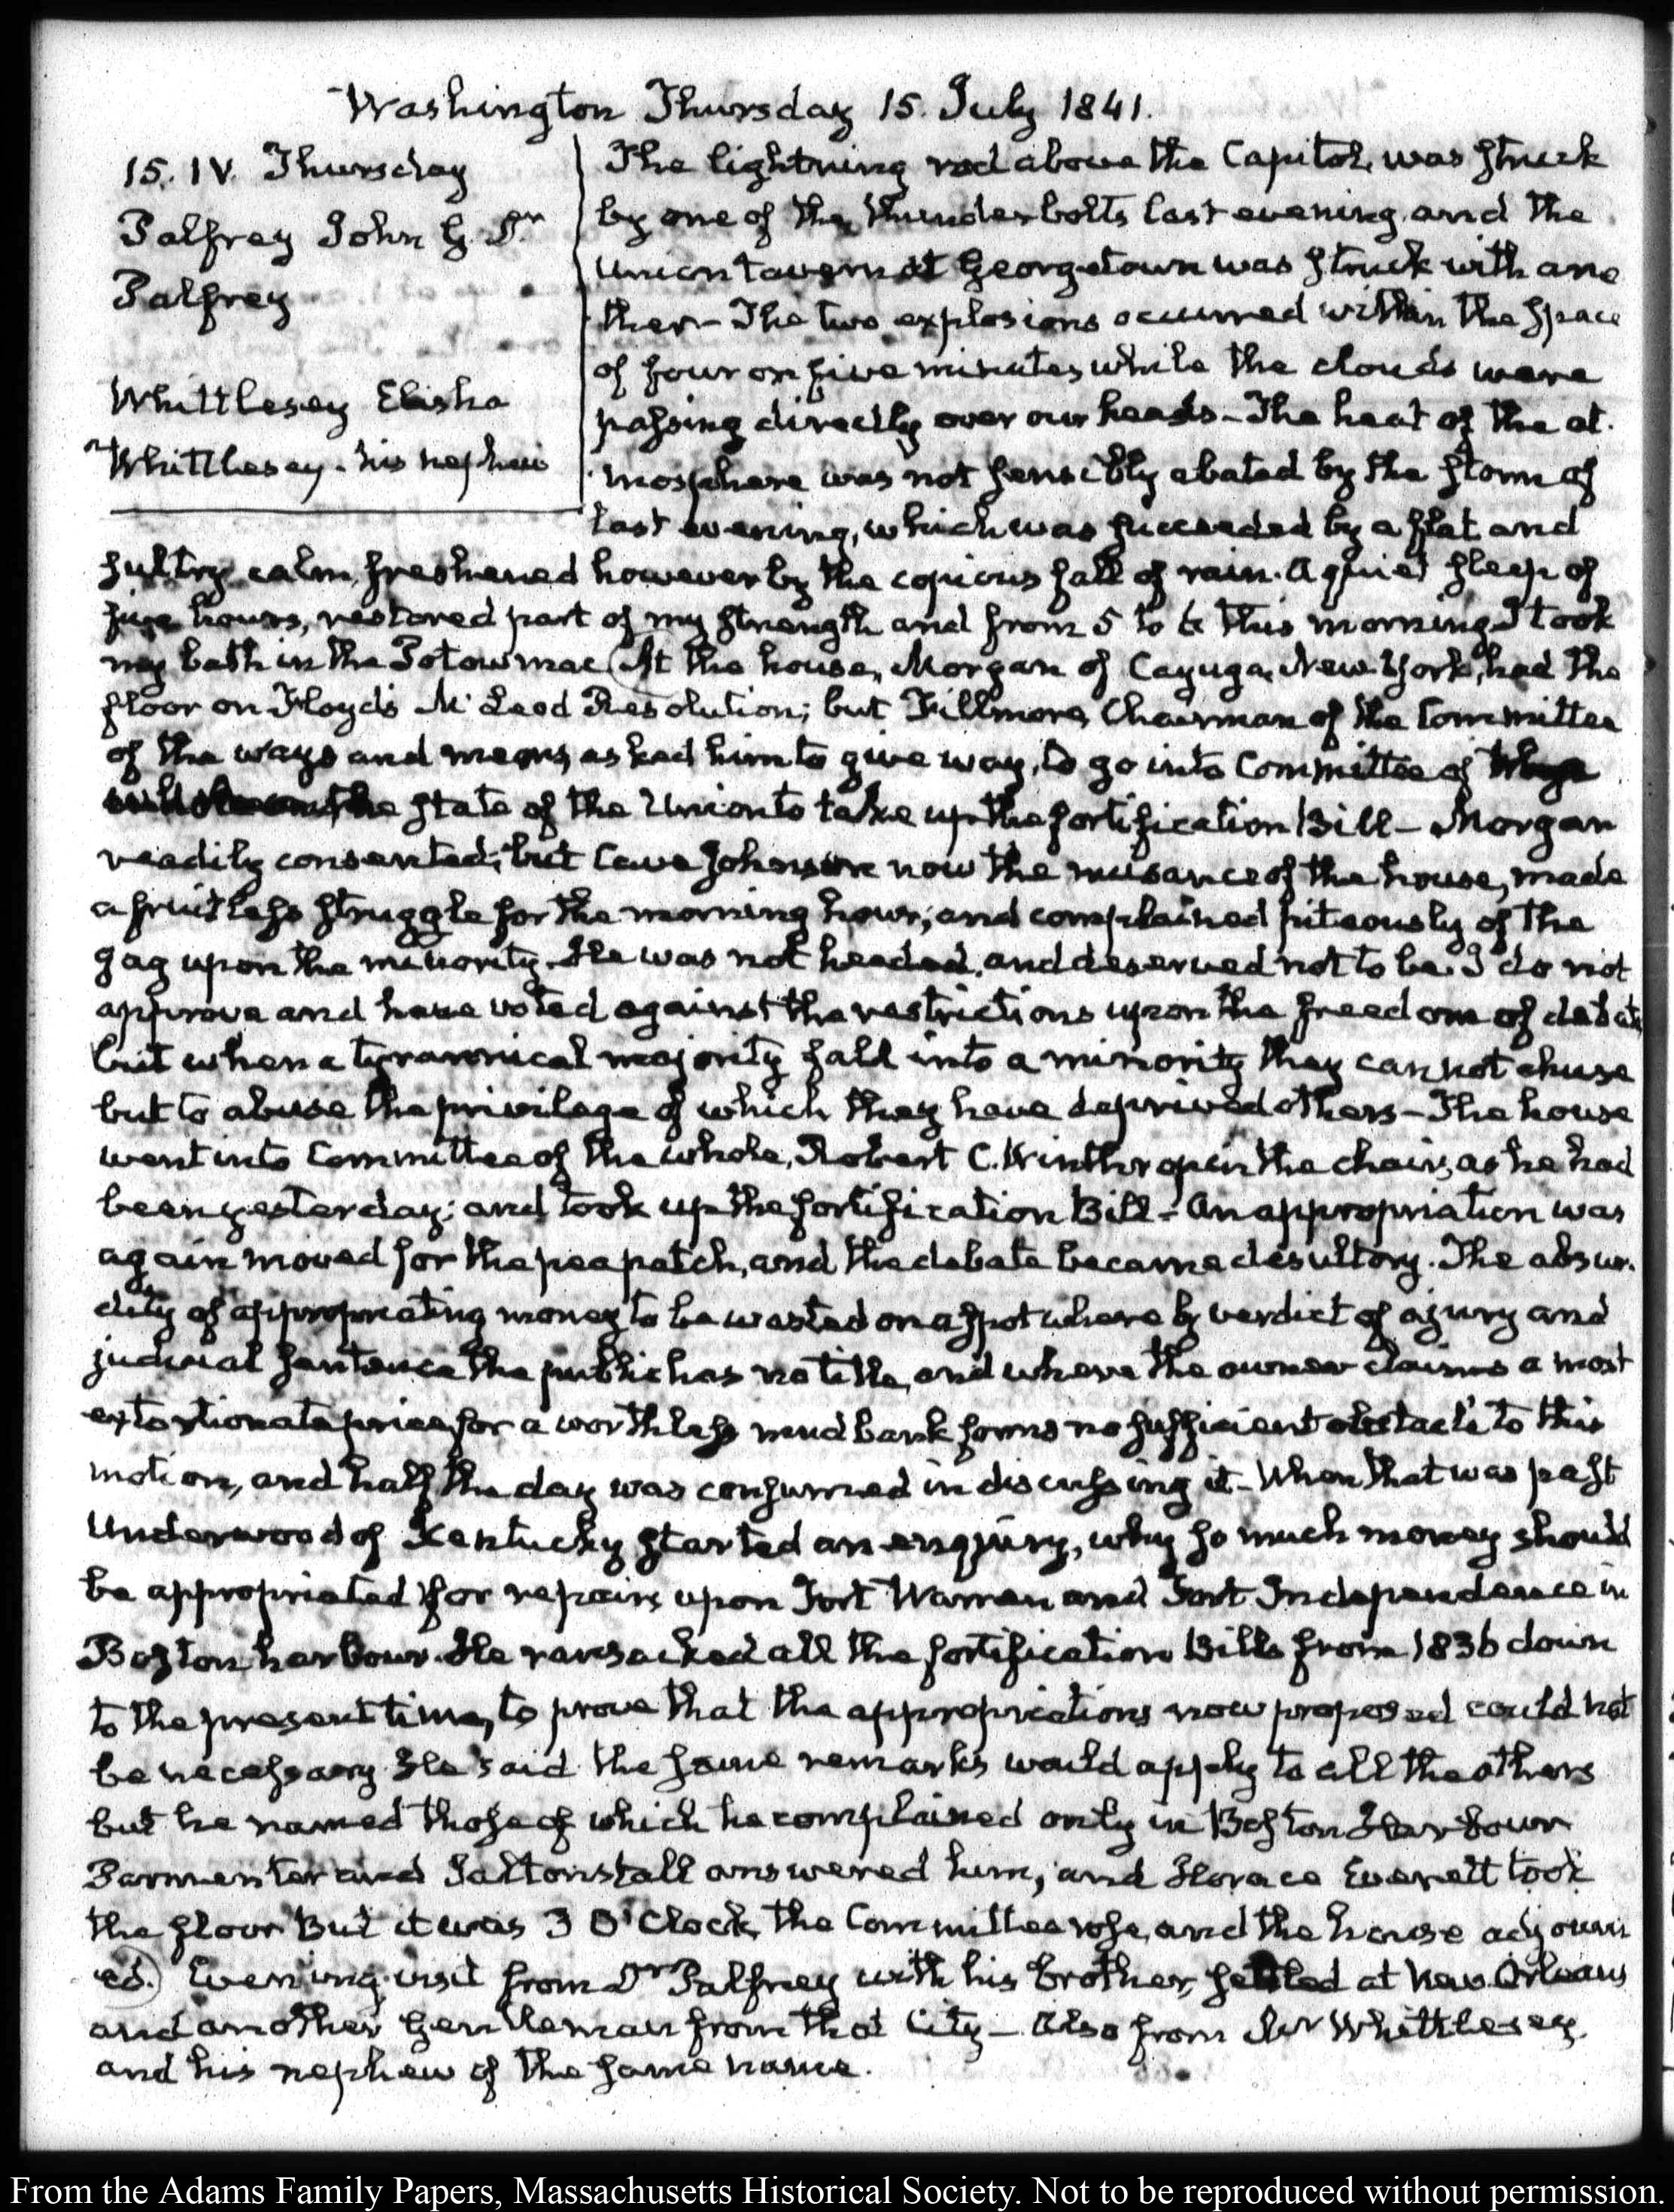 Washington Thursday 15. July 1841.
15. IV. Thursday
Palfrey John G. Dr
Palfrey
Whittlesey Elisha
Whittlesey - his nephew
The lightning rod above the Capitol, was struck
by one of the thunderbolts last evening, and the
Union tavern at Georgetown was struck with ano
ther - The two explosions occurred within the space
of four or five minutes while the clouds were
passing directly over our heads - The heat of the at.
mosphere was not sensibly abated by the storm of
last evening, which was succeeded by a flat and
sultry calm, freshened however by the copious fall of rain. A quiet sleep of
five hours, restored part of my strength and from 5 to 6 this morning I took
my bath in the Potowmac (At the house, Morgan of Cayuga, New-York, had the
floor on Floyd's McLeod Resolution; but Fillmore, Chairman of the Committee
of the ways and means, asked him to give way, to go into Committee of
the state of the Union to take up the fortification Bill - Morgan
readily consented; but Cave Johnson now the nuisance of the house, made
a fruitless struggle for the morning hour; and complained piteously of the
gag upon the minority. He was not heeded, and deserved not to be. I do not
approve and have voted against the restrictions upon the freedom of debate,
but when a tyrannical majority fall into a minority they cannot chuse
but to abuse the privilege of which they have deprived others - The house
went into Committee of the whole, Robert C. Winthrop in the chair, as he had
been yesterday; and took up the fortification Bill - An appropriation was
again moved for the pea patch, and the debate became desultory. The absur.
dity of appropriating money to be wasted on a spot where by verdict of a jury and
judicial sentence the public has no title, and where the owner claims a most
extortionate price for a worthless mud bank forms no sufficient obstacle to this
motion, and half the day was consumed in discussing it - When that was past
Underwood of Kentucky started an enquiry, why so much money should
be appropriated for repairs upon Fort Warren and Fort Independence in
Boston harbour. He ransacked all the fortification Bills from 1836 down
to the present time, to prove that the appropriations now proposed could not
be necessary. He said the same remarks would apply to all the others
but he named those of which he complained only in Boston Harbour
Parmenter and Saltonstall answered him, and Horace Everett took
the floor But it was 3 O'Clock, the Committee rose, and the house adjourn
ed.) Evening visit from Dr Palfrey with his brother, settled at New Orleans
and another Gentleman from that City - Also from Mr Whittlesey
and his nephew of the same name.
From the Adams Family Papers, Massachusetts Historical Society. Not to be reproduced without permission.